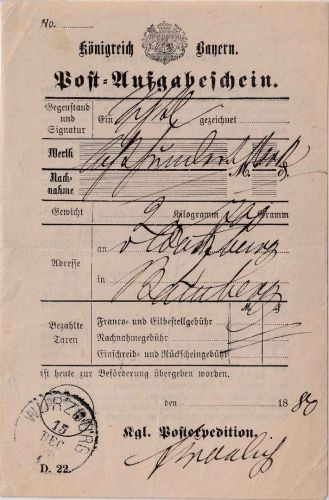 No.
Königreich Bayern.
Post-Aufgabeschein.
Gegenstand und Signatur
Ein gezeichnet
Werth
M. ₰
Nachnahme
Gewicht 2 Kilogramm 700 Gramm
an
Adresse
in Bamberg
M. ₰
Bezahlte Taxen
Franco- und Eilbestellgebühr
Nachnahmegebühr
Einschreib- und Rückscheingebühr
ist heute zur Beförderung übergeben worden.
den 18 80
WÜRZBURG
15
DEC
Kgl. Postexpedition.
D. 22.